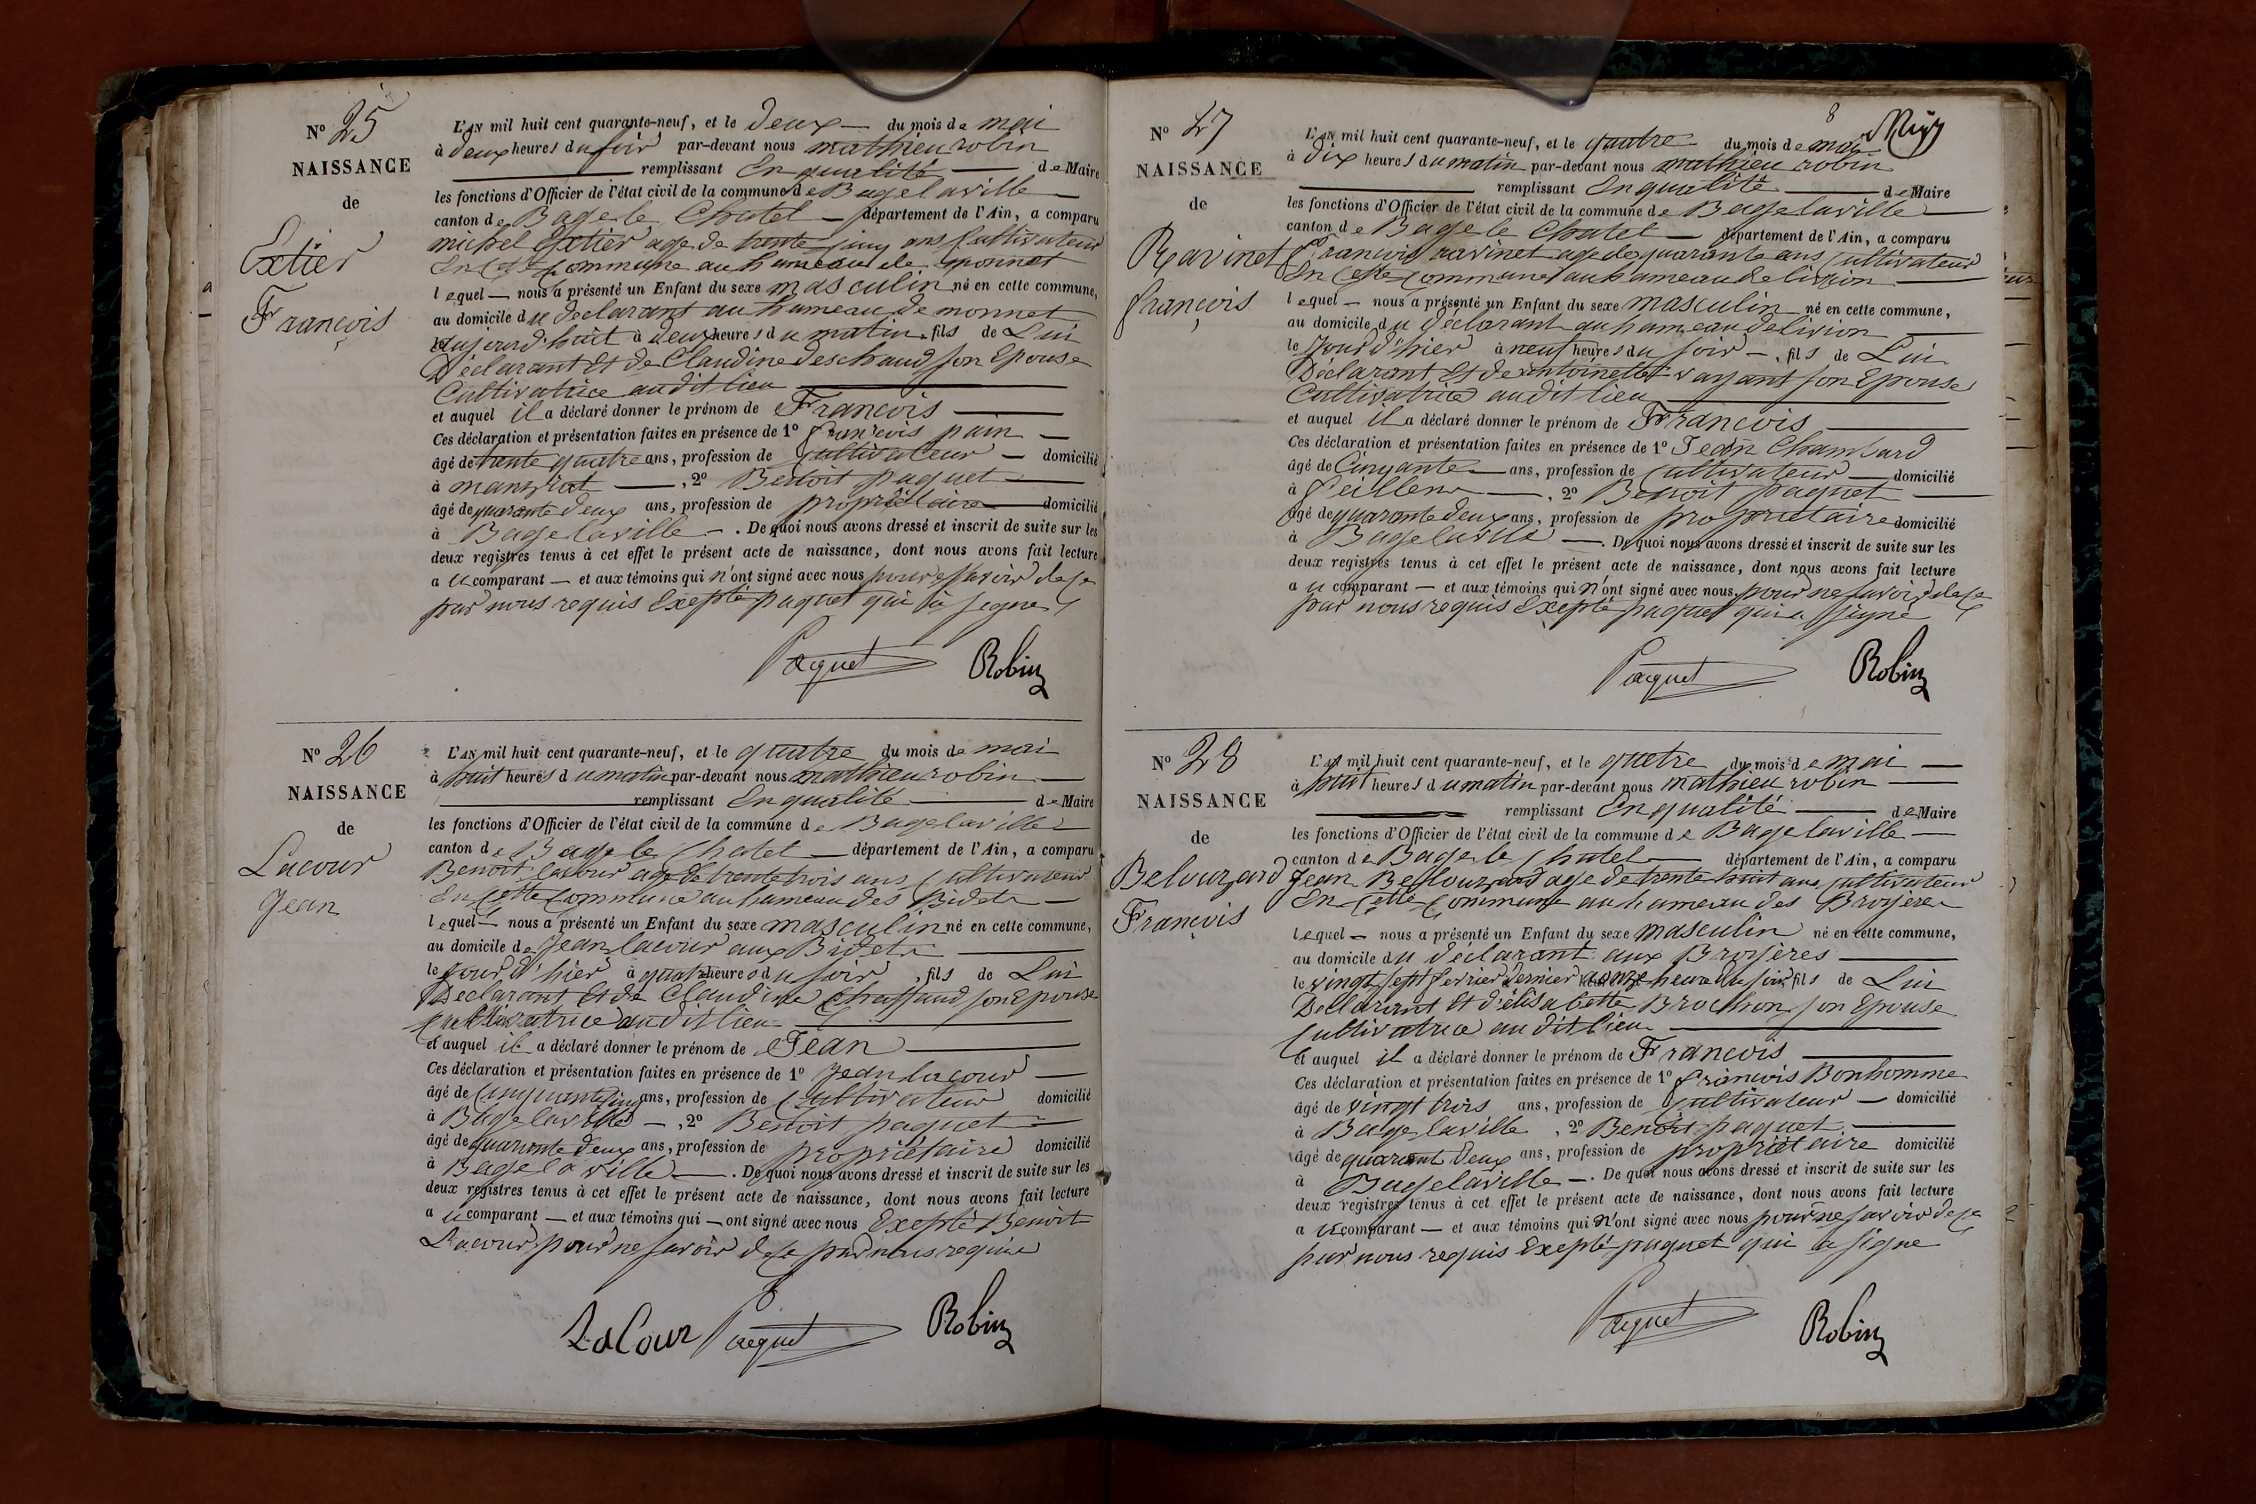 N° 25
NAISSANCE
de
Extier
François
L'AN mil huit cent quarante-neuf, et le deux du mois de mai
à deux heures du soir par-devant nous mathieu robin
remplissant En qualité de Maire
les fonctions d'Officier de l'état civil de la commune de Bagelaville
canton de Bage le Chatel département de l'Ain, a comparu
michel Extier age de trente cinq ans Cultivateur
En Cette Commune au hameau de monnet
lequel nous a présenté un Enfant du sexe masculin né en cette commune,
au domicile du declarant au hameau de monnet
aujourd'huit à deux heures du matin fils de Lui
Déclarant Et de Claudine Deschaud son Epouse
Cultivatrice audit lieu
et auquel il a déclaré donner le prénom de François
Ces déclaration et présentation faites en présence de 1° françois pain
âgé de trente quatre ans, profession de Cultivateur domicilié
à manziat , 2° Benoit paquet
âgé de quarante deux ans, profession de propriétaire domicilié
à Bagelaville . De quoi nous avons dressé et inscrit de suite sur les
deux registres tenus à cet effet le présent acte de naissance, dont nous avons fait lecture
au comparant et aux témoins qui n'ont signé avec nous pour savoir de ce
par nous requis Exepté paquet qui à signe
Paquet Robin
N° 26
NAISSANCE
de
Lacour
Jean
L'AN mil huit cent quarante-neuf, et le quatre du mois de mai
à huit heures du matin par-devant nous mathieu robin
remplissant En qualité de Maire
les fonctions d'Officier de l'état civil de la commune de Bagelaville
canton de Bage le Chatel département de l'Ain, a comparu
Benoit lacour age de trente trois ans Cultivateur
En Cette Commune au hameau des Bidets
lequel nous a présenté un Enfant du sexe masculin né en cette commune,
au domicile de Jean lacour aux Bidets
le Jour d'hier à quatre heures du soir , fils de Lui
Déclarant Et de Claudine Chaffaud son Epouse
Cultivatrice audit lieu
et auquel il a déclaré donner le prénom de Jean
Ces déclaration et présentation faites en présence de 1° Jean Lacour
âgé de Cinquante cinq ans, profession de Cultivateur domicilié
à Bagelaville , 2° Benoit paquet
âgé de quarante deux ans, profession de propriétaire domicilié
à Bagelaville . De quoi nous avons dressé et inscrit de suite sur les
deux registres tenus à cet effet le présent acte de naissance, dont nous avons fait lecture
au comparant et aux témoins qui ont signé avec nous Exepté Benoit
Lacour pour ne savoir de ce par nous requis
LaCour Paquet Robin
8
N° 27
NAISSANCE
de
Ravinet
françois
L'AN mil huit cent quarante-neuf, et le quatre du mois de mai
à dix heures du matin par-devant nous mathieu robin
remplissant En qualité de Maire
les fonctions d'Officier de l'état civil de la commune de Bagelaville
canton de Bage le Chatel département de l'Ain, a comparu
François ravinet age de quarante ans Cultivateur
En Cette Commune au hameau de livion
lequel nous a présenté un Enfant du sexe masculin né en cette commune,
au domicile du déclarant au hameau de livion
le Jour d'hier à neuf heures du soir , fils de Lui
Déclarant Et de antoinette vayant son Epouse
Cultivatrice audit lieu
et auquel il a déclaré donner le prénom de François
Ces déclaration et présentation faites en présence de 1° Jean Chambard
âgé de Cinquante ans, profession de Cultivateur domicilié
à feillens , 2° Benoit paquet
âgé de quarante deux ans, profession de propriétaire domicilié
à Bagelaville . De quoi nous avons dressé et inscrit de suite sur les
deux registres tenus à cet effet le présent acte de naissance, dont nous avons fait lecture
au comparant et aux témoins qui n'ont signé avec nous pour ne savoir de ce
par nous requis Exepté paquet qui a signé
Paquet Robin
N° 28
NAISSANCE
de
Belouzard
François
L'AN mil huit cent quarante-neuf, et le quatre du mois de mai
à huit heures du matin par-devant nous mathieu robin
remplissant En qualité de Maire
les fonctions d'Officier de l'état civil de la commune de Bagelaville
canton de Bage le Chatel département de l'Ain, a comparu
Jean Bellouzard age de trente huit ans Cultivateur
En Cette Commune au hameau des Broyères
lequel nous a présenté un Enfant du sexe masculin né en cette commune,
au domicile du déclarant aux Broyères
le vingt sept fevrier dernier à onze heure du soir, fils de Lui
Déclarant Et d'élisabette Brochon son Epouse
Cultivatrice audit lieu
et auquel il a déclaré donner le prénom de François
Ces déclaration et présentation faites en présence de 1° françois Bonhomme
âgé de vingt trois ans, profession de Cultivateur domicilié
à Bagelaville , 2° Benoit paquet
âgé de quarante deux ans, profession de propriétaire domicilié
à Bagelaville . De quoi nous avons dressé et inscrit de suite sur les
deux registres tenus à cet effet le présent acte de naissance, dont nous avons fait lecture
au comparant et aux témoins qui n'ont signé avec nous pour ne savoir de ce
par nous requis Exepté paquet qui a signe
Paquet Robin